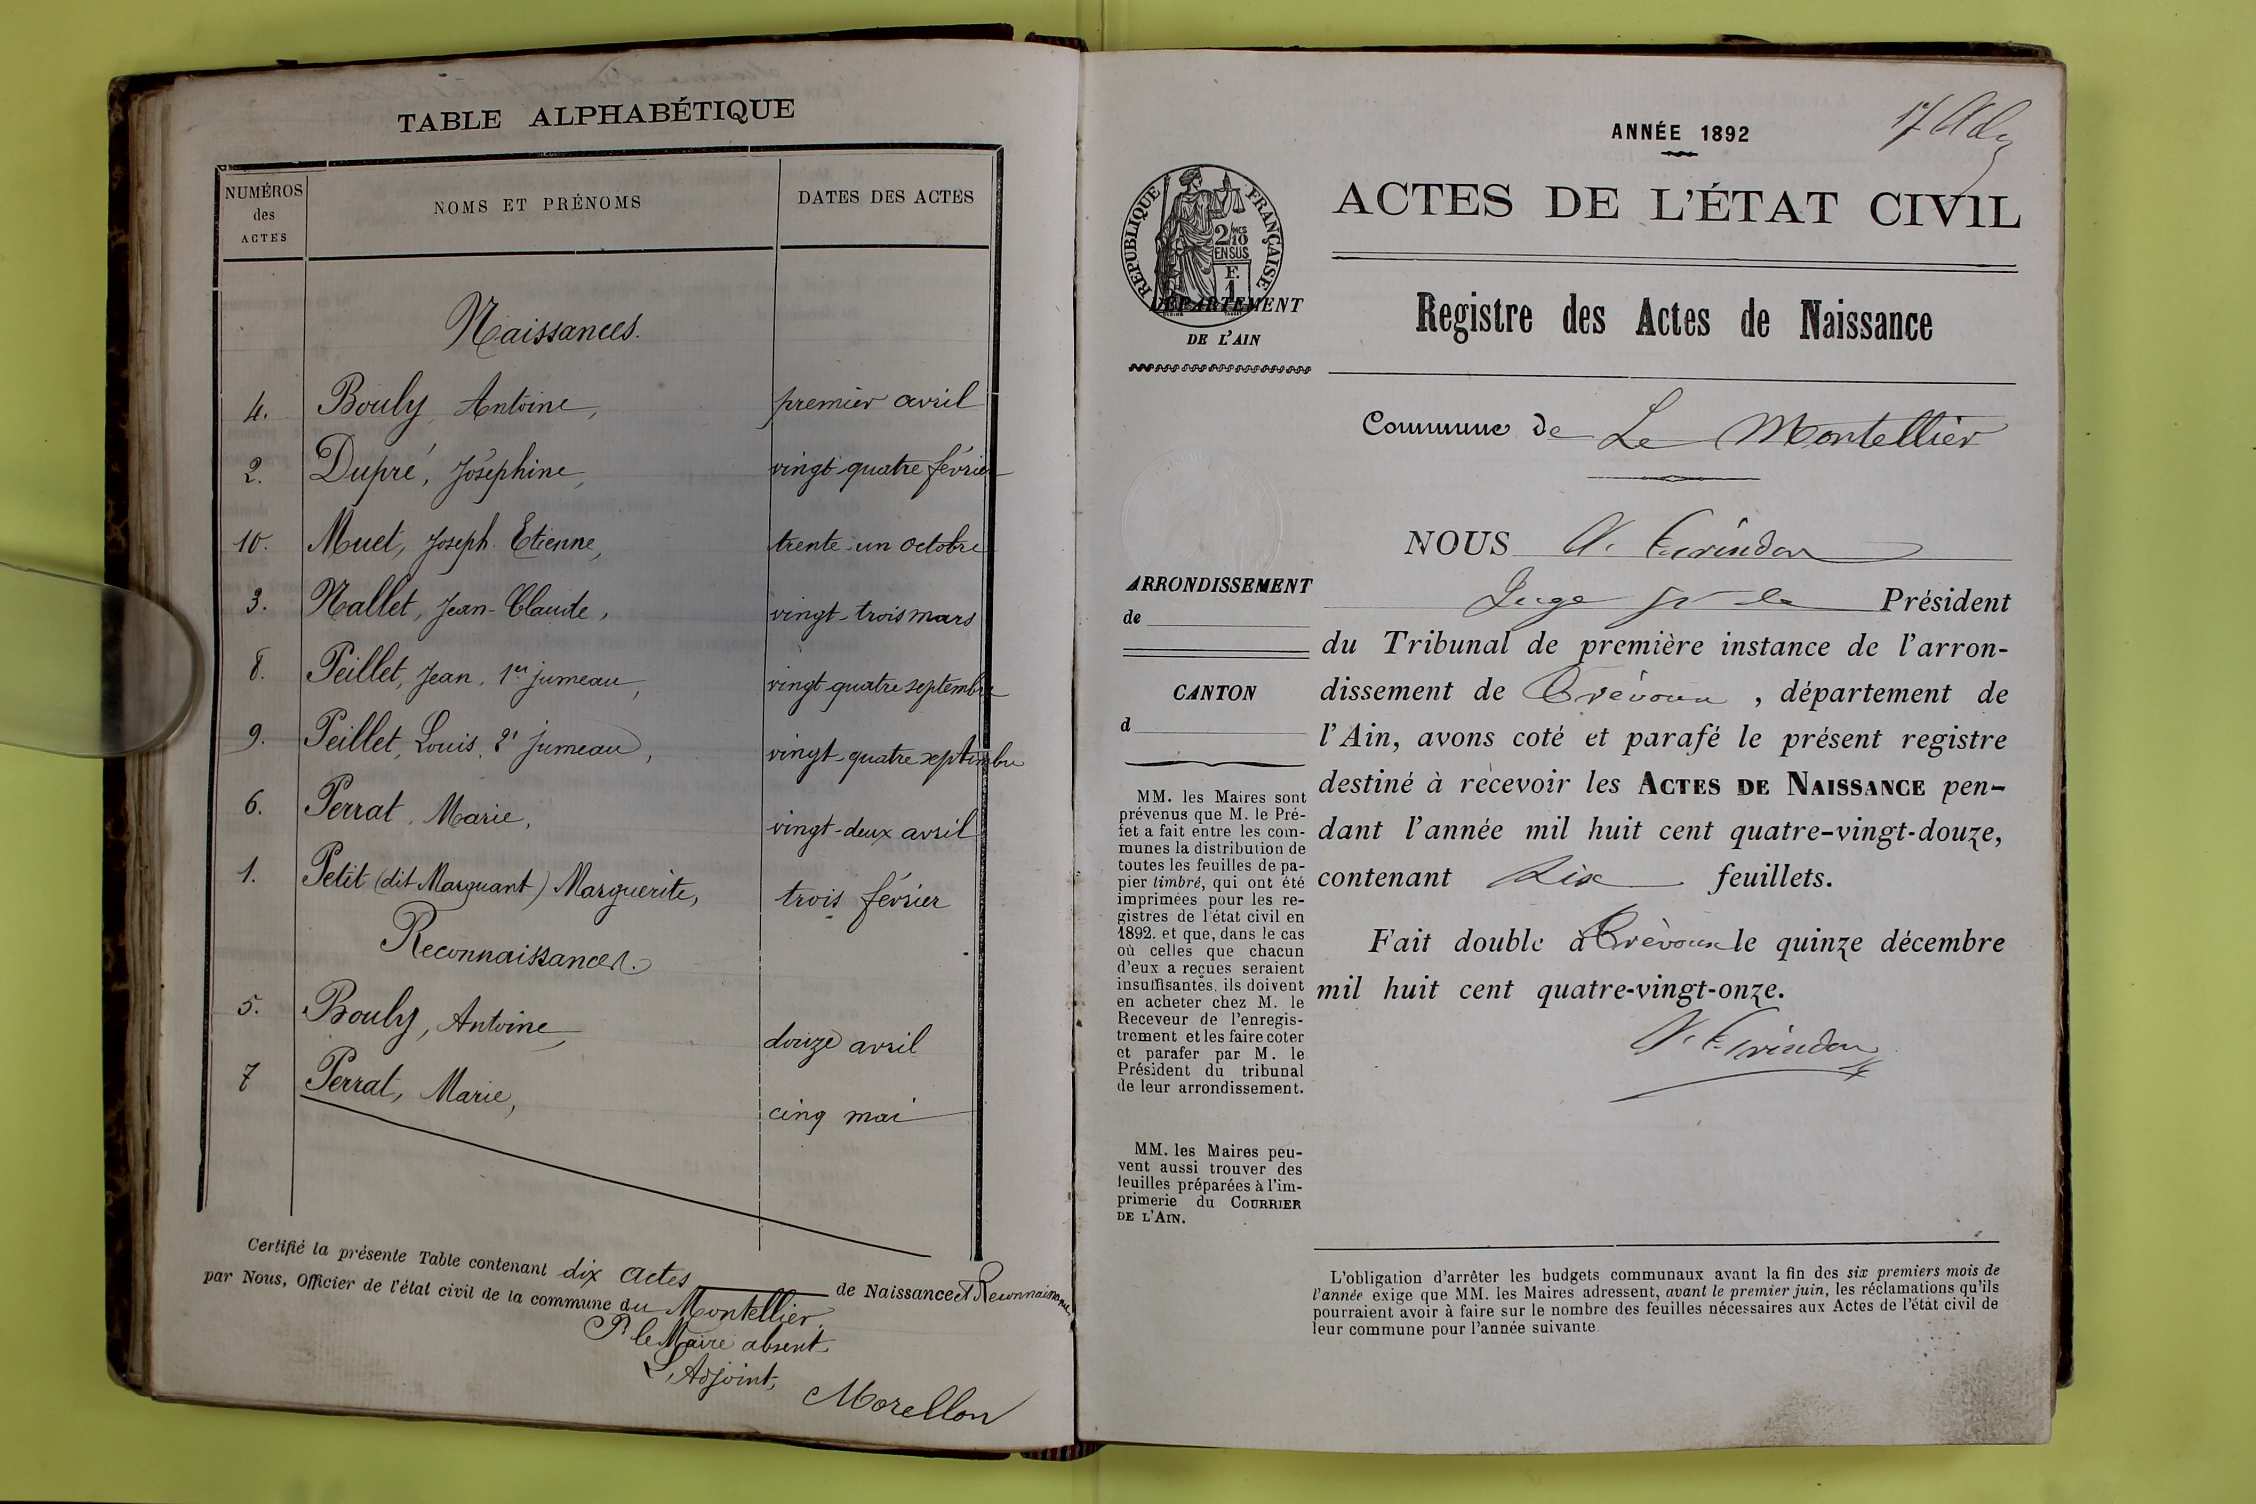 TABLE ALPHABÉTIQUE
NUMÉROS des ACTES NOMS ET PRÉNOMS DATES DES ACTES
Naissances.
4. Bouly Antoine, premier avril
2. Dupré, Joséphine, vingt-quatre février
10. Muet, Joseph Etienne, trente-un octobre
3. Nallet, Jean-Claude, vingt-trois mars
8. Peillet, Jean, 1er jumeau, vingt-quatre septembre
9. Peillet, Louis, 2e jumeau, vingt-quatre septembre
6. Perrat, Marie, vingt-deux avril
1. Petit (dit Marguant) Marguerite, trois février
Reconnaissances.
5. Bouly, Antoine, douze avril
7 Perrat, Marie, cinq mai
Certifié la présente Table contenant dix actes de Naissance et Reconnaissance
par Nous, Officier de l'état civil de la commune du Montellier.
Pr le Maire absent
L'Adjoint,
Morellon
ANNÉE 1892
ACTES DE L'ÉTAT CIVIL
RÉPUBLIQUE FRANÇAISE
2/10 EN SUS
F. 1
DÉPARTEMENT
DE L'AIN
Registre des Actes de Naissance
Commune de Le Montellier
NOUS
ARRONDISSEMENT
de
CANTON
d
Juge pr le Président
du Tribunal de première instance de l'arron-
dissement de Trévoux, département de
l'Ain, avons coté et parafé le présent registre
destiné à recevoir les ACTES DE NAISSANCE pen-
dant l'année mil huit cent quatre-vingt-douze,
contenant six feuillets.
Fait double à Trévoux le quinze décembre
mil huit cent quatre-vingt-onze.
MM. les Maires sont
prévenus que M. le Pré-
fet a fait entre les com-
munes la distribution de
toutes les feuilles de pa-
pier timbré, qui ont été
imprimées pour les re-
gistres de l'état civil en
1892. et que, dans le cas
où celles que chacun
d'eux a reçues seraient
insuffisantes, ils doivent
en acheter chez M. le
Receveur de l'enregis-
trement et les faire coter
et parafer par M. le
Président du tribunal
de leur arrondissement.
MM. les Maires peu-
vent aussi trouver des
feuilles préparées à l'im-
primerie du COURRIER
DE L'AIN.
L'obligation d'arrêter les budgets communaux avant la fin des six premiers mois de
l'année exige que MM. les Maires adressent, avant le premier juin, les réclamations qu'ils
pourraient avoir à faire sur le nombre des feuilles nécessaires aux Actes de l'état civil de
leur commune pour l'année suivante